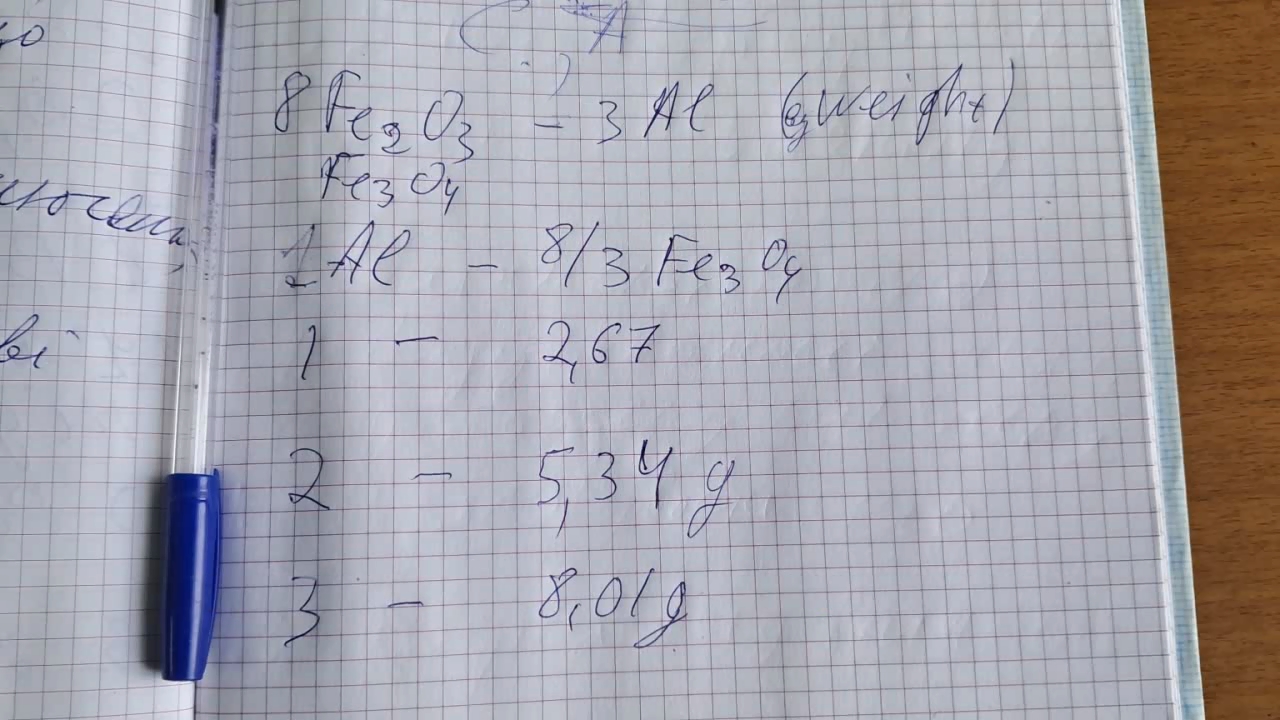 8 Fe2O3 - 3 Al (weight)
Fe3O4
1 Al - 8/3 Fe3O4
1 - 2,67
2 - 5,34 g
3 - 8,01 g